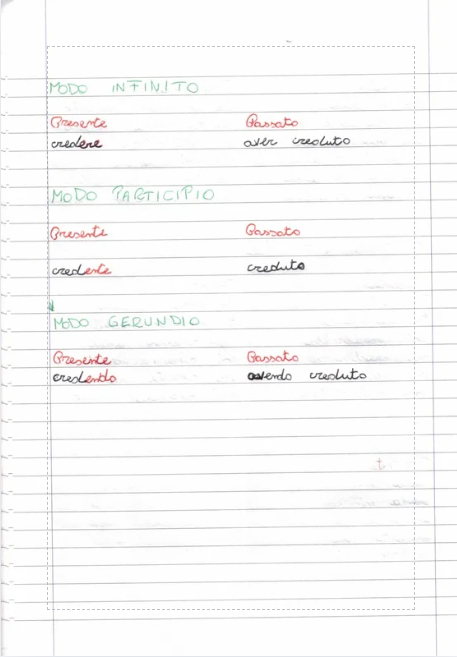 MODO INFINITO
Presente Passato
credere aver creduto
MODO PARTICIPIO
Presente Passato
credente creduto
MODO GERUNDIO
Presente Passato
credendo avendo creduto